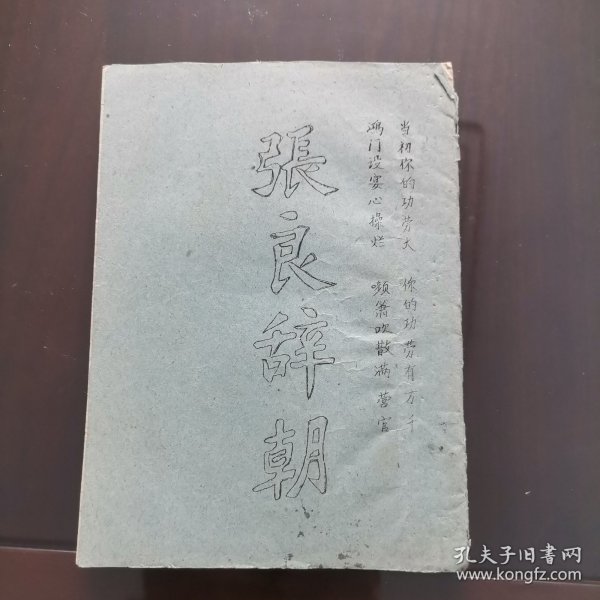 当初你的功劳大 你的功劳有万千
鸿门设宴心操烂 箫吹散满营官
張良辞朝
孔夫子旧书网
www.kongfz.com